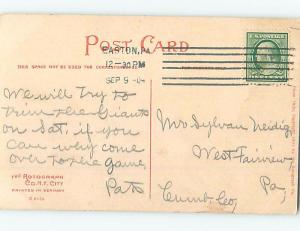 POST CARD
EASTON, PA
12-30 PM
SEP 9
THIS SPACE MAY BE USED FOR CORRESPONDENCE
We will try to
trim the Giants
on Sat, if you
can why come
over to the game,
Pat
Mr Sylvan Neidig
West Fairview
Pa
Cumb. Co,
THE ROTOGRAPH
CO. N.Y. CITY
PRINTED IN GERMANY